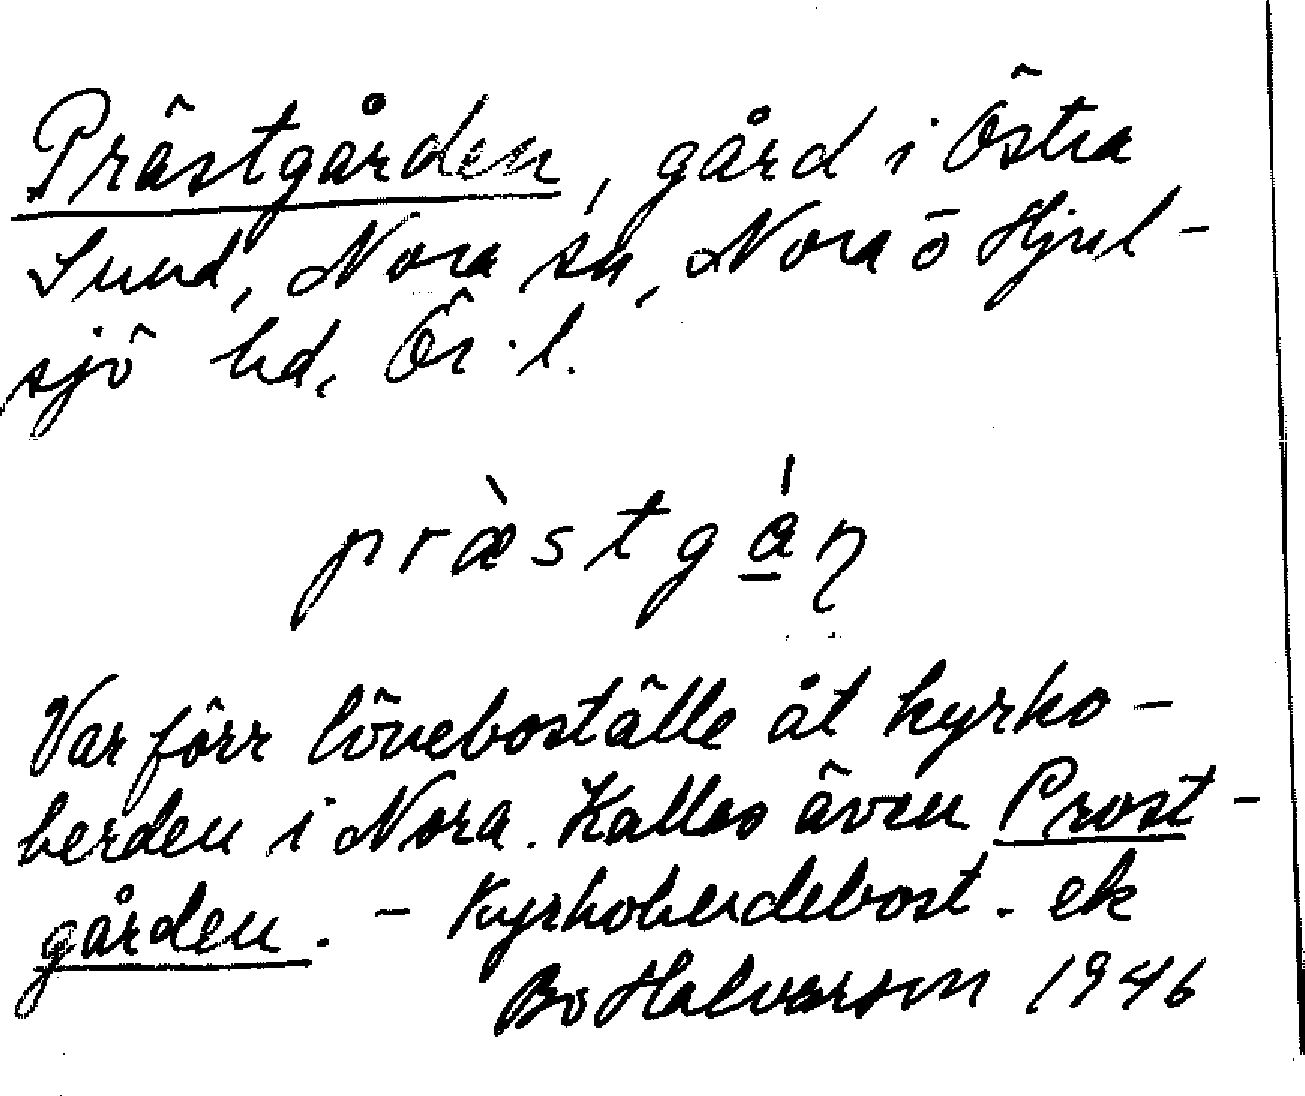 Prästgården, gård i Östra
Sund, Nora sn, Nora o Hjul-
sjö hd, Ör. l.
præ̀stgá̱ɳ
Var förr löneboställe åt kyrko-
herden i Nora. Kallas även Prost-
gården. - Kyrkoherdebost. ek
Bo Halvarson 1946